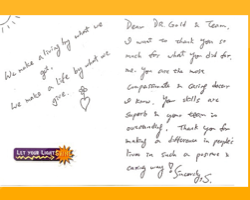 We make a living by what we
get.
We make a life by what we
give.
LET YOUR LIGHT
Dear DR. Gold & Team,
I want to thank you so
much for what you did for
me. You are the most
compassionate & caring doctor
I know. Your skills are
superb & your team is
outstanding. Thank you for
making a difference in people's
lives in such a positive &
caring way! Sincerely, S.